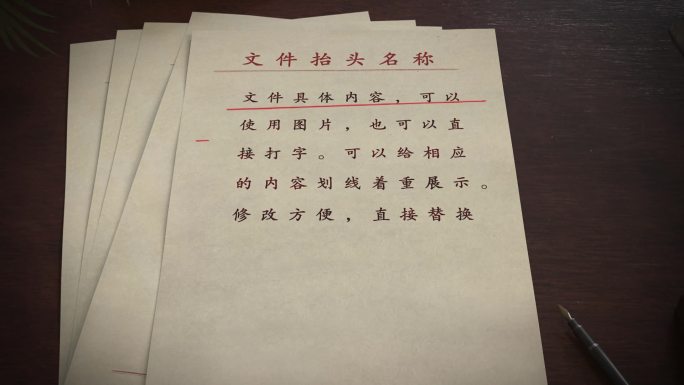 文件抬头名称
文件具体内容，可以
使用图片，也可以直
接打字。可以给相应
的内容划线着重展示。
修改方便，直接替换